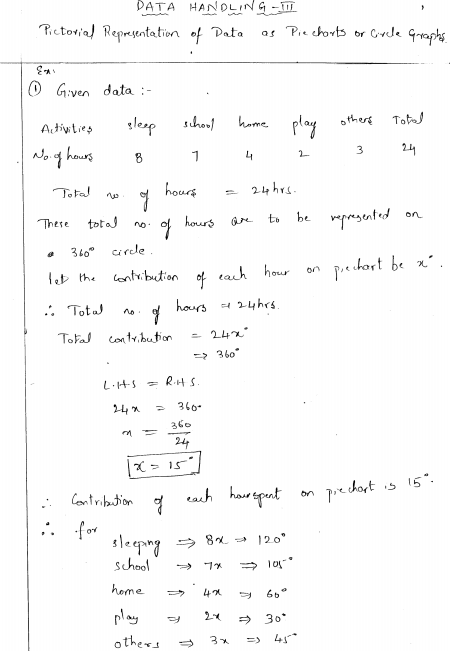 DATA HANDLING - III
Pictorial Representation of Data as Piecharts or Circle Graphs
Ex:
① Given data :-
Activities sleep school home play others Total
No. of hours 8 7 4 2 3 24
Total no. of hours = 24hrs.
These total no. of hours are to be represented on
a 360° circle.
let the contribution of each hour on piechart be x°.
∴ Total no. of hours = 24hrs.
Total contribution = 24x°
=> 360°
L.H.S = R.H.S.
24x = 360°
x = 360/24
x = 15°
∴ Contribution of each hour spent on piechart is 15°.
∴ for
sleeping => 8x => 120°
school => 7x => 105°
home => 4x => 60°
play => 2x => 30°
others => 3x => 45°